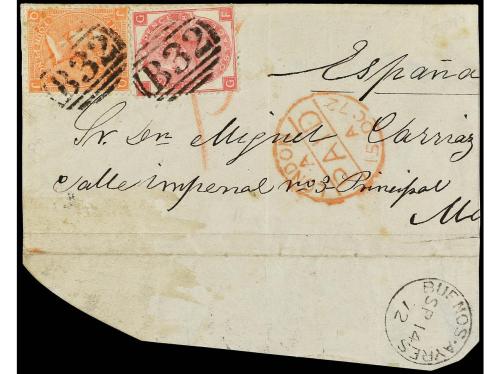 B32 B32
España
Sr. Dn Miguel Carriaz
Calle imperial no 3 Principal
LONDON PAID 15 OC 72
BUENOS-AYRES
SP 14
72